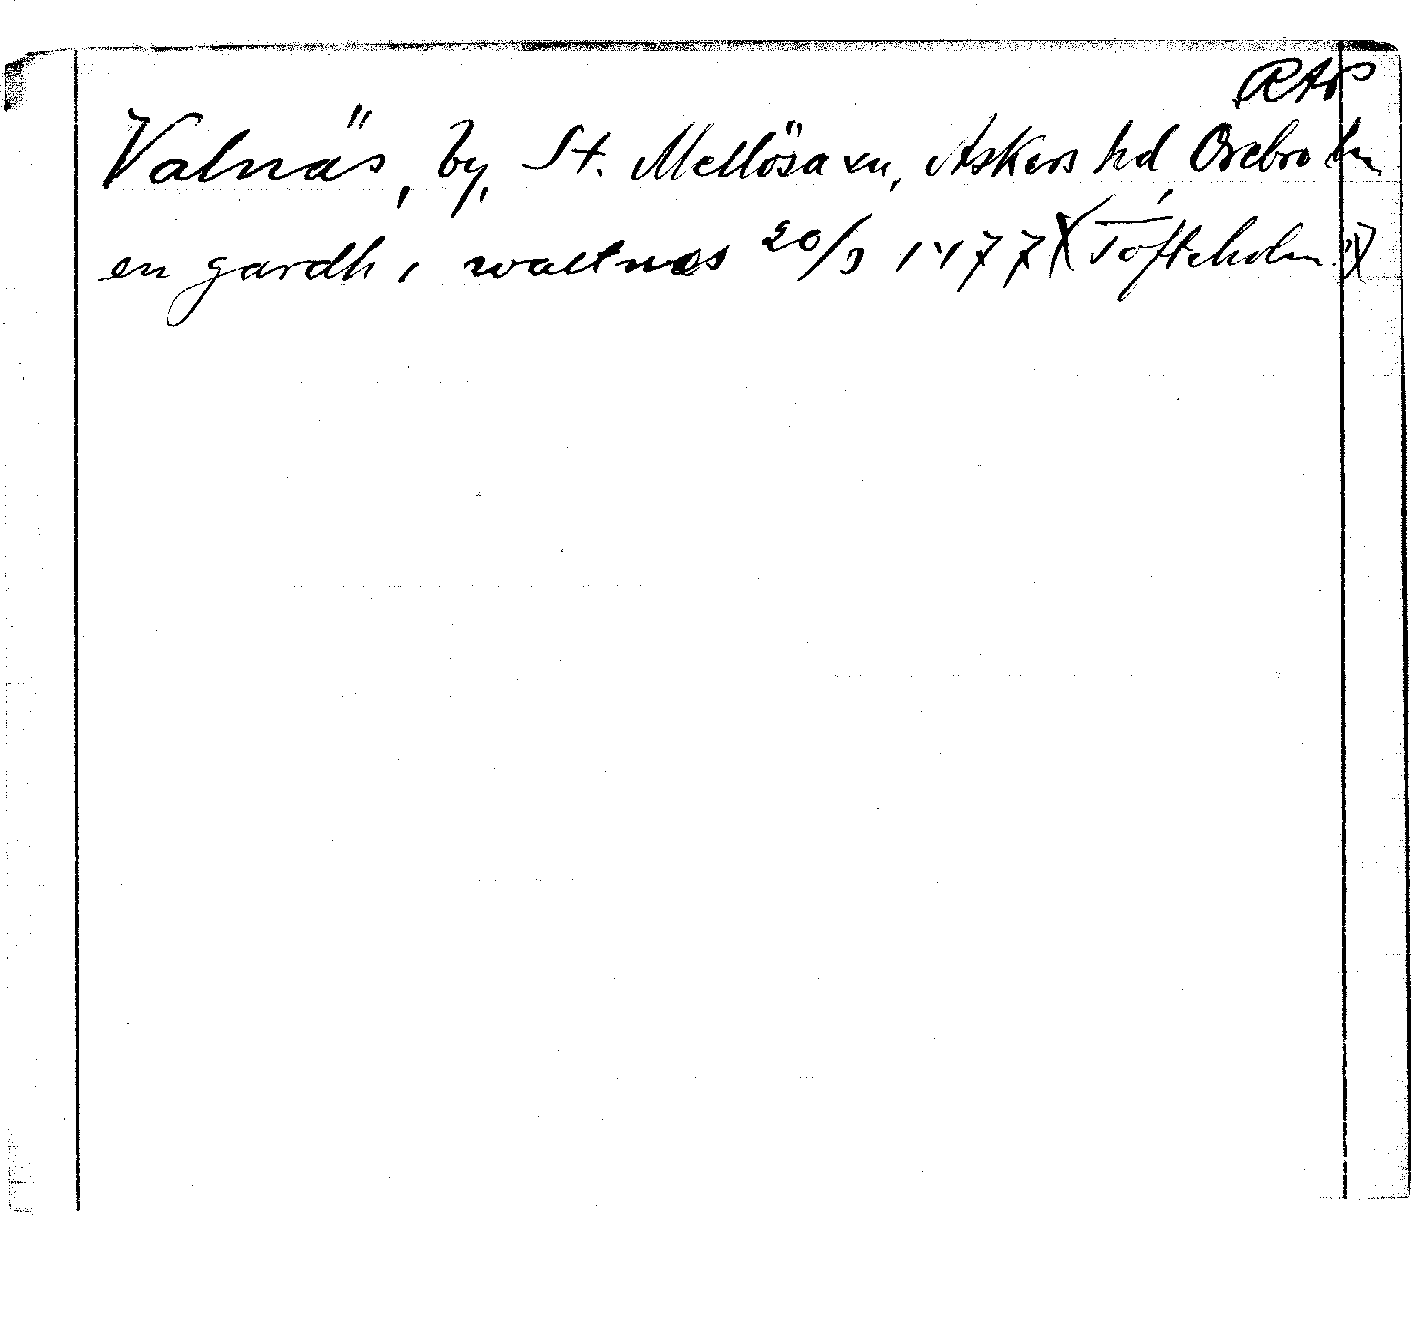 RAP
Valnäs, by, St. Mellösa sn, Askers hd, Örebro ln
en gardh i wallnæs 20/9 1477 (Tofteholm)